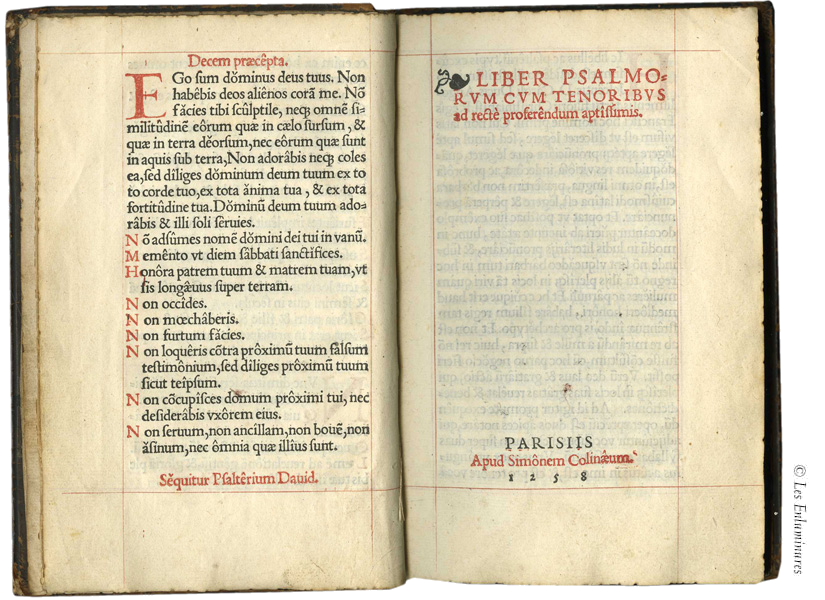 Decem præcêpta.
EGo sum dŏminus deus tuus. Non
habêbis deos aliênos corã me. Nõ
fácies tibi scûlptile, neq; omnẽ si-
militûdinẽ eôrum quæ in cælo sursum, &
quæ in terra dĕorsum, nec eôrum quæ sunt
in aquis sub terra, Non adorâbis neq; coles
ea, sed dîliges dŏminum deum tuum ex to
to corde tuo, ex tota ănima tua, & ex tota
fortitûdine tua. Dŏminũ deum tuum ado-
râbis & illi soli sêruies.
Nõ adsûmes nomẽ dŏmini dei tui in vanũ.
Memênto vt diem sâbbati sanctîfices.
Honôra patrem tuum & matrem tuam, vt
sis longæuus super terram.
Non occîdes.
Non mœchâberis.
Non furtum fâcies.
Non loquêris cõtra prôximũ tuum fâlsum
testimônium, sed dîliges prôximum tuum
sicut teîpsum.
Non cõcupîsces domum prôximi tui, nec
desiderâbis vxôrem eius.
Non seruum, non ancîllam, non bouẽ, non
âsinum, nec ômnia quæ illîus sunt.
Sêquitur Psaltêrium Dauid.
LIBER PSALMO-
RVM CVM TENORIBVS
ad rectè proferêndum aptîssimis.
PARISIIS
Apud Simônem Colinæum.
1258
© Les Enluminures